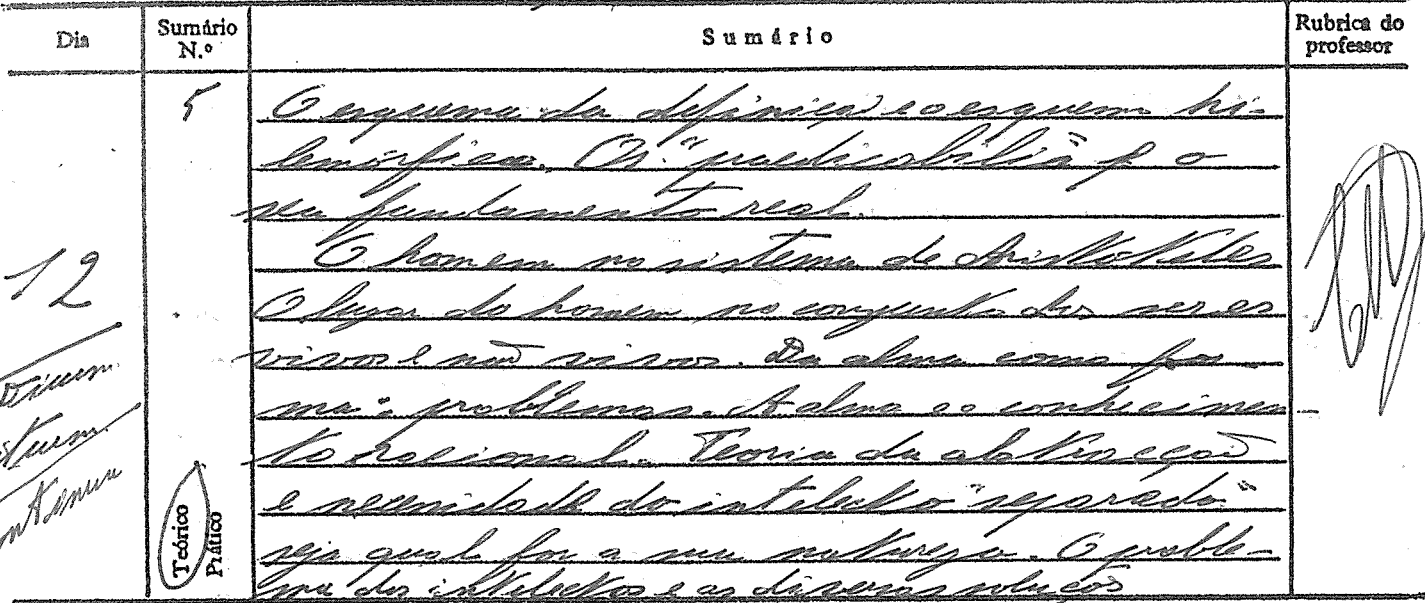 Dia
Sumário N.º
Sumário
Rubrica do professor
12
5
Teórico
Prático
O esquema da definição e o esquema hi-
lemórfico. Os "praedicabilia" e o
seu fundamento real.
O homem no sistema de Aristóteles
O lugar do homem no conjunto dos seres
vivos e não vivos. Da alma como "for
ma": problemas. A alma e o conhecimen
to racional. Teoria da abstracção
e necessidade do intelecto "separado"
seja qual for a sua natureza. O proble-
ma dos intelectos e as diversas soluções